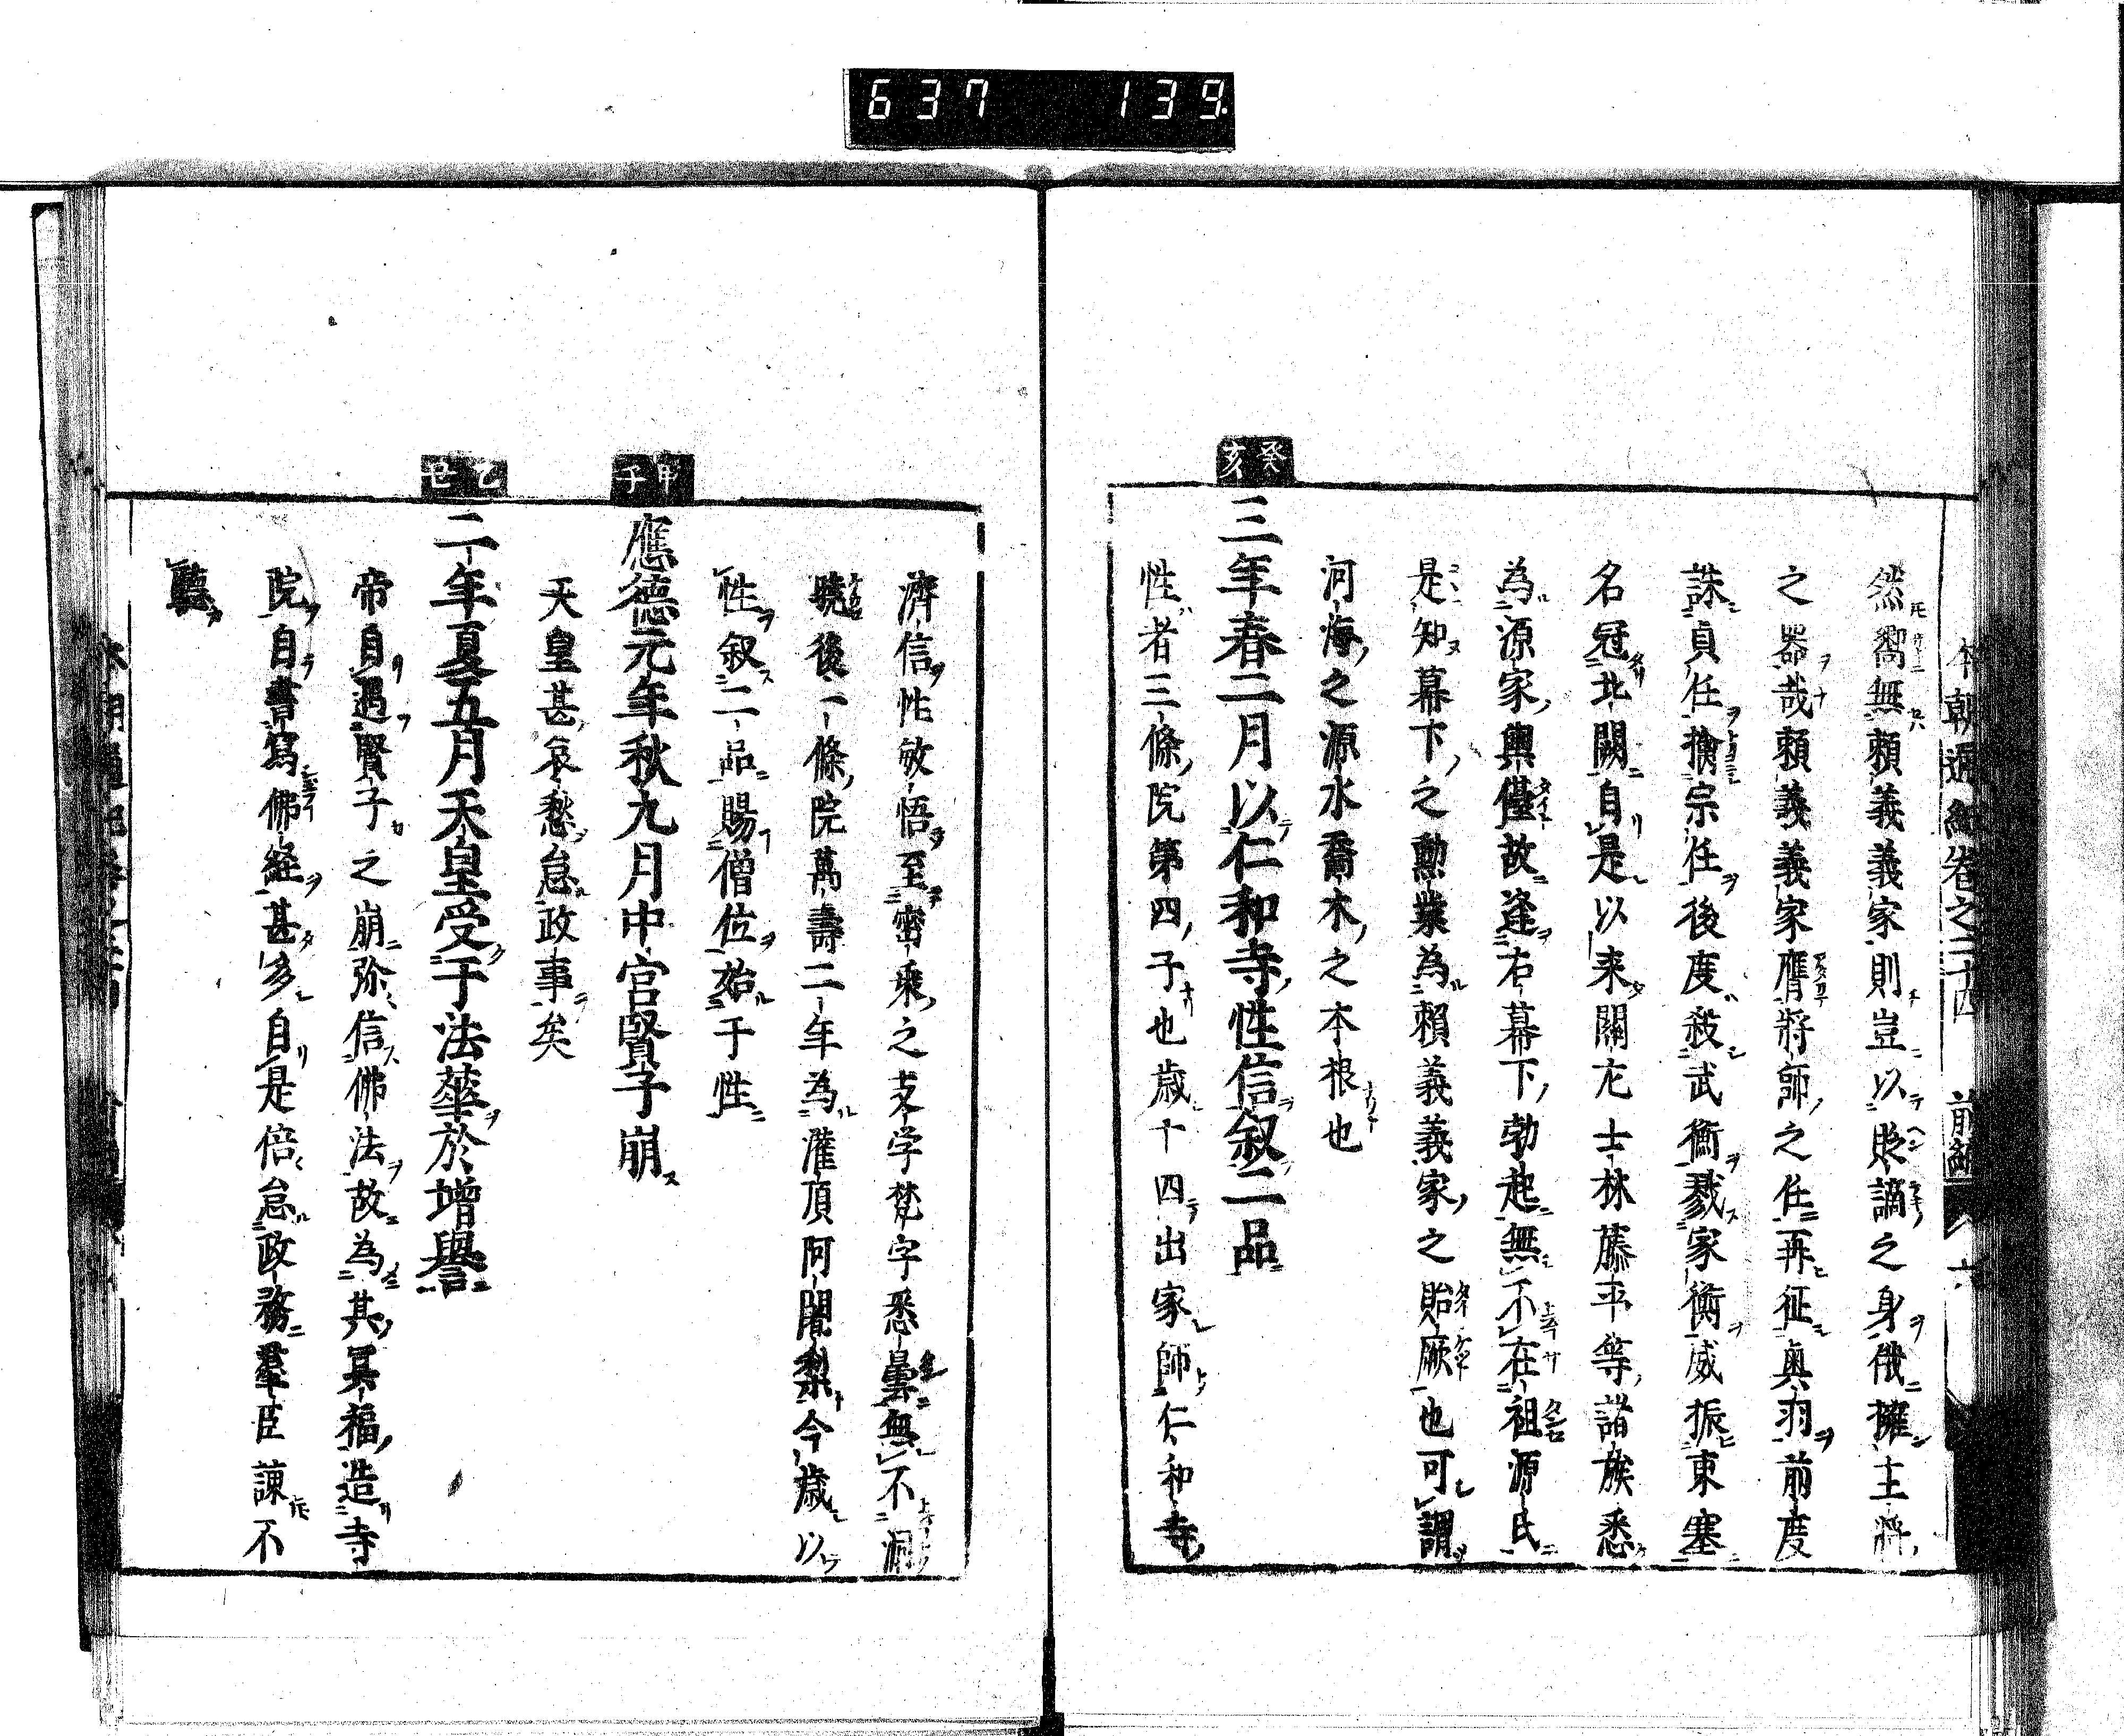 637 139
本朝通紀卷之二十四 前編 六
然嚮無賴義義家則豈以貶謫之身俄擁主將
之器哉賴義義家膺將師之任再征奥羽前度
誅貞任擒宗任後度殺武衡戮家衡威振東塞
名冠北闕自是以来關左士林藤平等諸族悉
為源家輿儓故逮右幕下勃起無不在祖源氏
是知幕下之勳業為賴義義家之貽厥也可謂
河海之源水喬木之本根也
癸亥
三年春二月以仁和寺性信叙二品
性者三條院第四子也歳十四出家師仁和寺
濟信性敏悟至密乘之支学梵字悉曇無不洞
曉後一條院萬壽二年為灌頂阿闍梨今歳以
性叙二品賜僧位始于性
甲子
應德元年秋九月中宮賢子崩
天皇甚哀愁怠政事矣
乙丑
二年夏五月天皇受于法華於增譽
帝自遇賢子之崩弥信佛法故為其冥福造寺
院自書寫佛経甚多自是倍怠政務羣臣諫不
聽